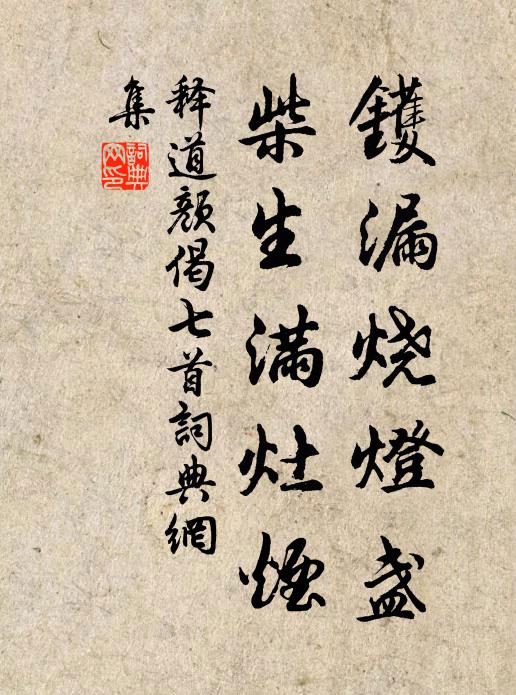 鑊漏烧燈盏
柴生满灶煙
释道颜偈七首詞典網
集
詞典
网印